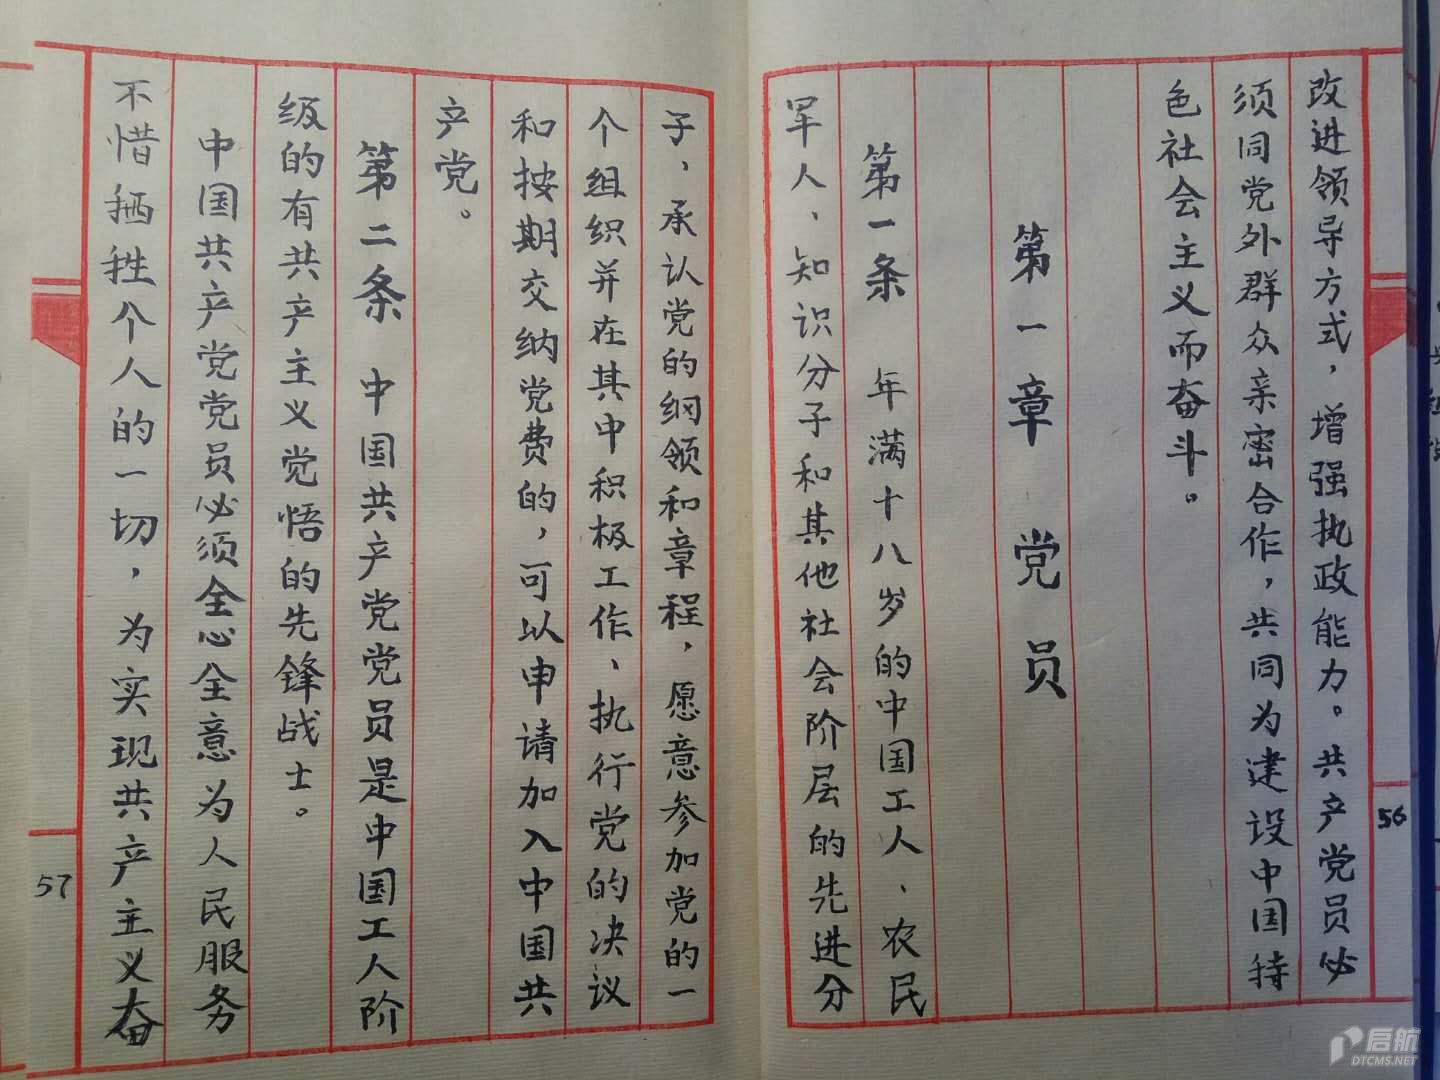 改进领导方式，增强执政能力。共产党员必
须同党外群众亲密合作，共同为建设中国特
色社会主义而奋斗。
第一章 党员
第一条 年满十八岁的中国工人、农民
军人、知识分子和其他社会阶层的先进分
56
子，承认党的纲领和章程，愿意参加党的一
个组织并在其中积极工作、执行党的决议
和按期交纳党费的，可以申请加入中国共
产党。
第二条 中国共产党党员是中国工人阶
级的有共产主义党悟的先锋战士。
中国共产党党员必须全心全意为人民服务
不惜牺牲个人的一切，为实现共产主义奋
57
启航
DTCMS.NET